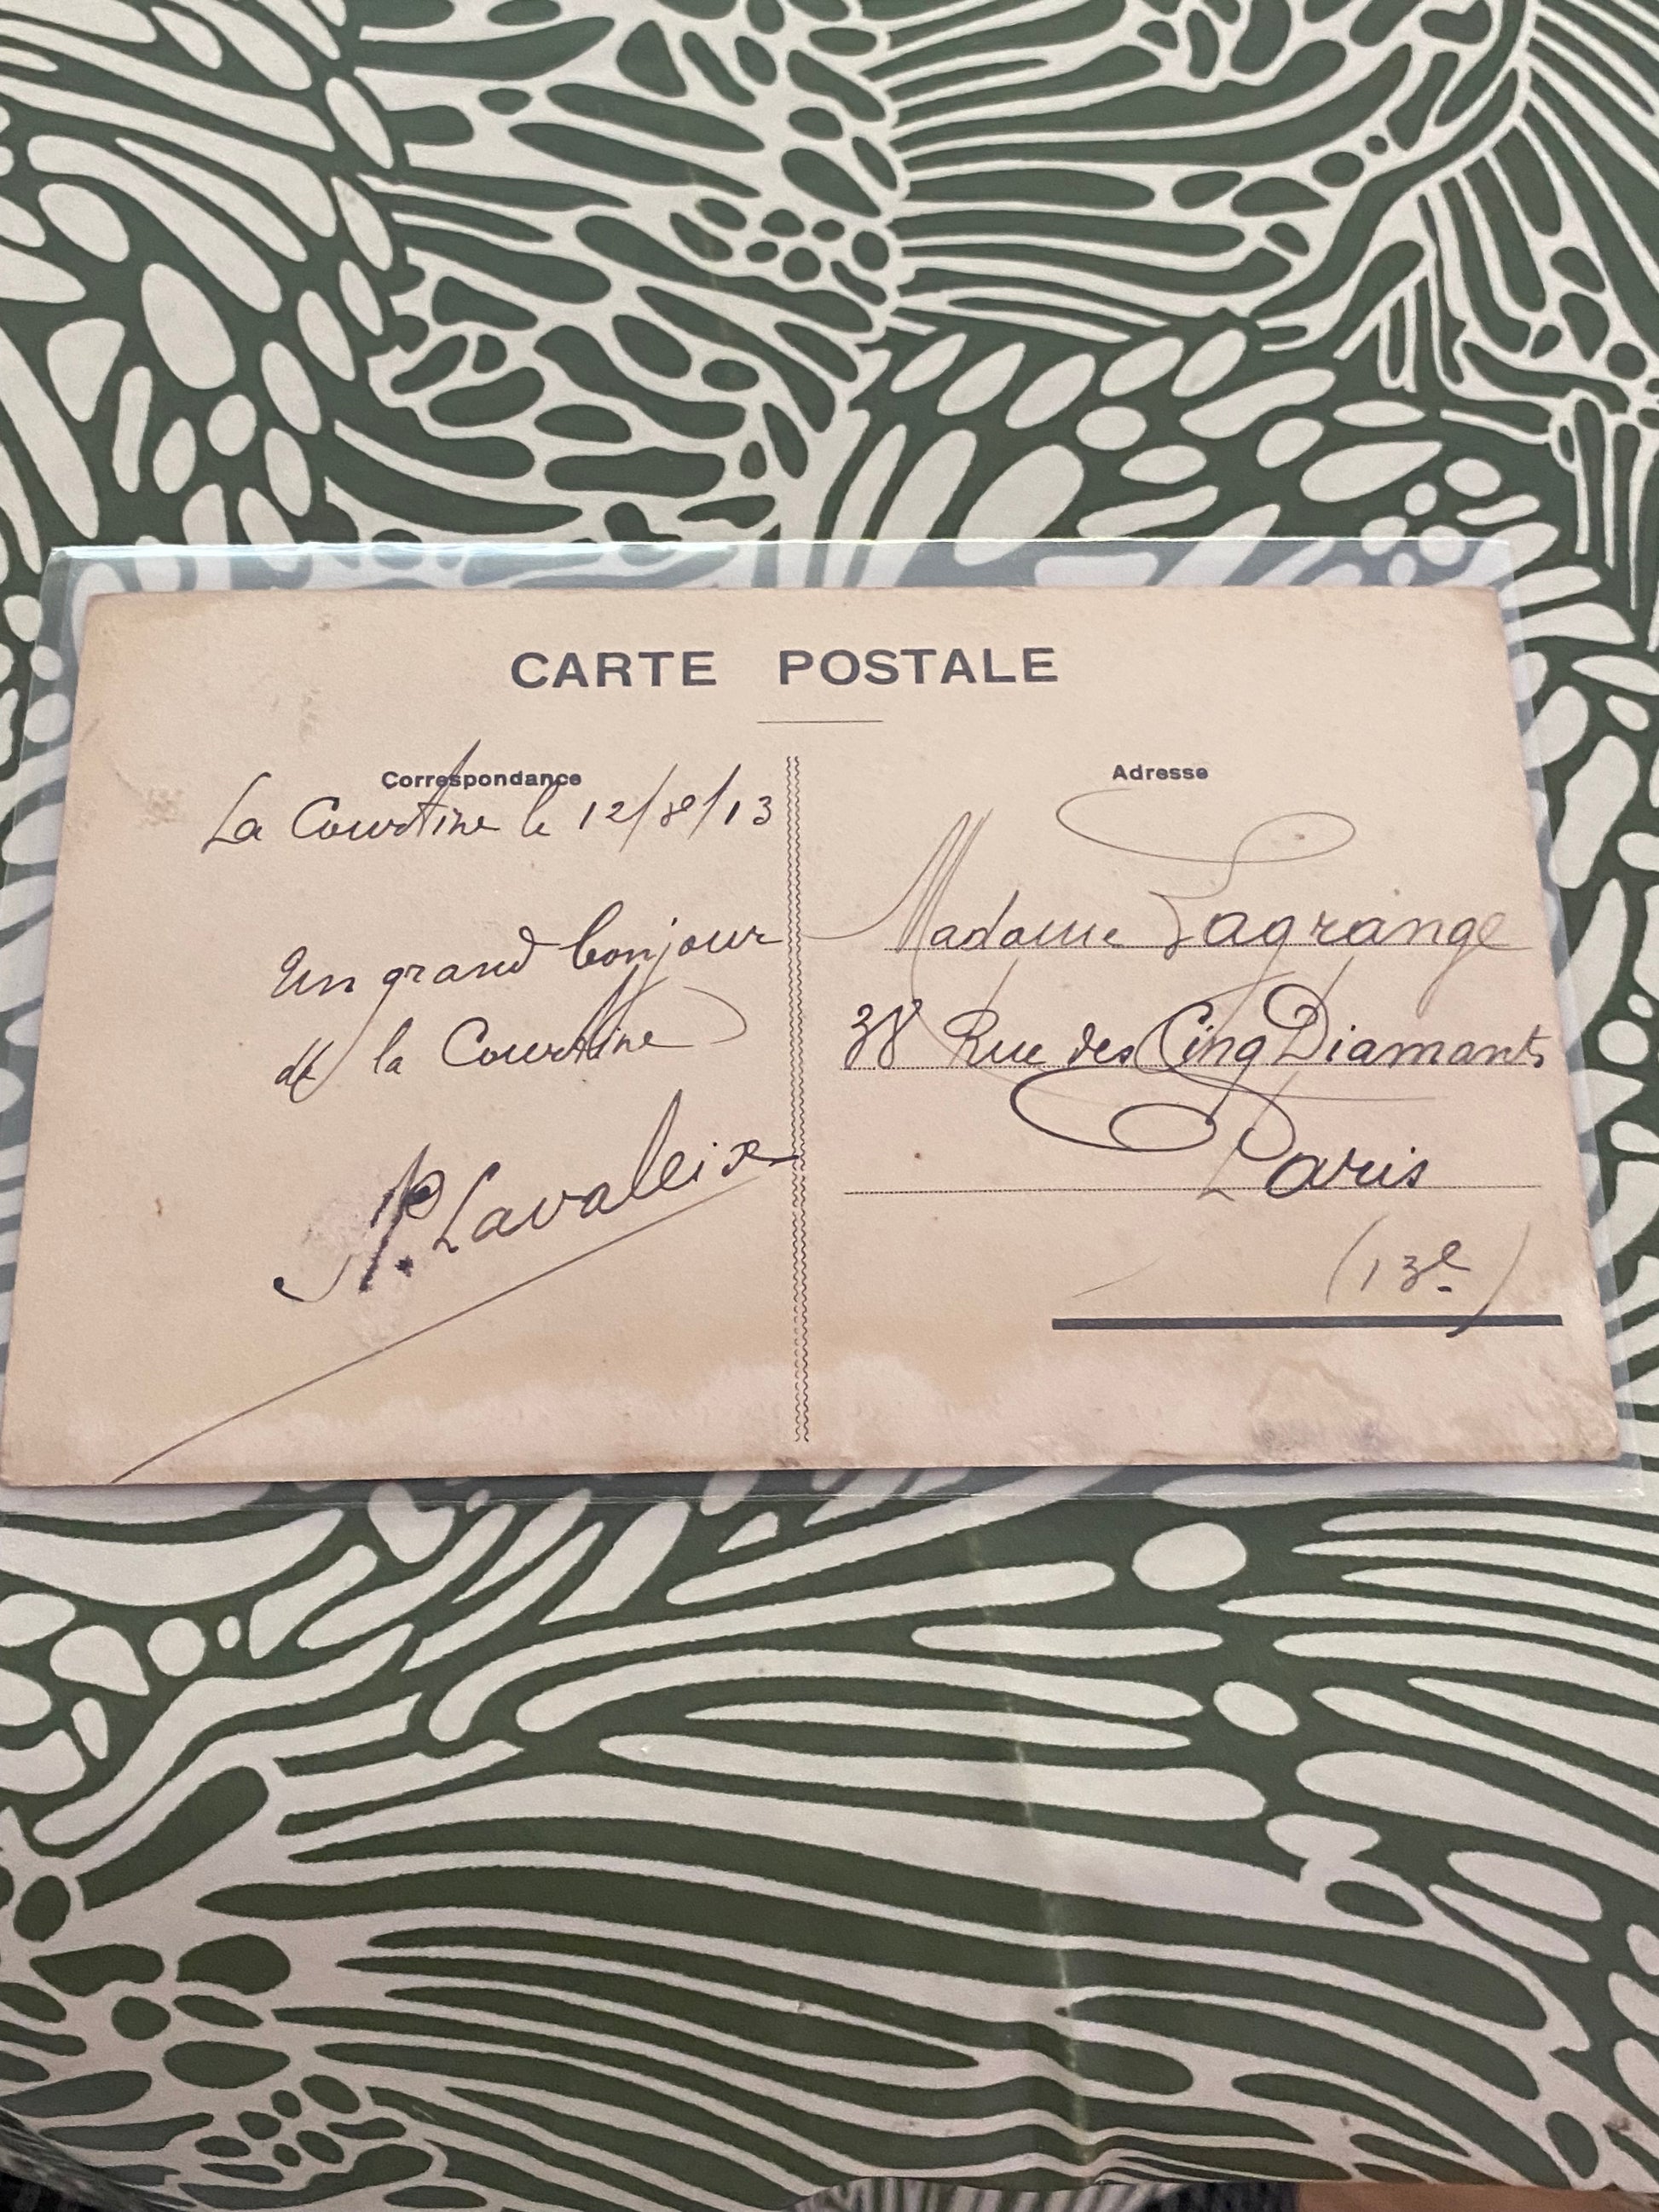 CARTE POSTALE
Correspondance
La Courtine le 12/8/13
Un grand bonjour
de la Courtine
P. Lavaleix
Adresse
Madame Lagrange
38 Rue des Cinq Diamants
Paris
(13e)